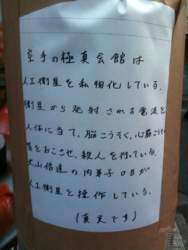 空手の極真会館は
人工衛星を私物化している。
衛星から発射される電波を
人体に当て、脳こうそく、心筋こうそく
等をおこさせ、殺人を行っている。
大山倍達の内弟子OBが
人工衛星を操作している。
(真実です)